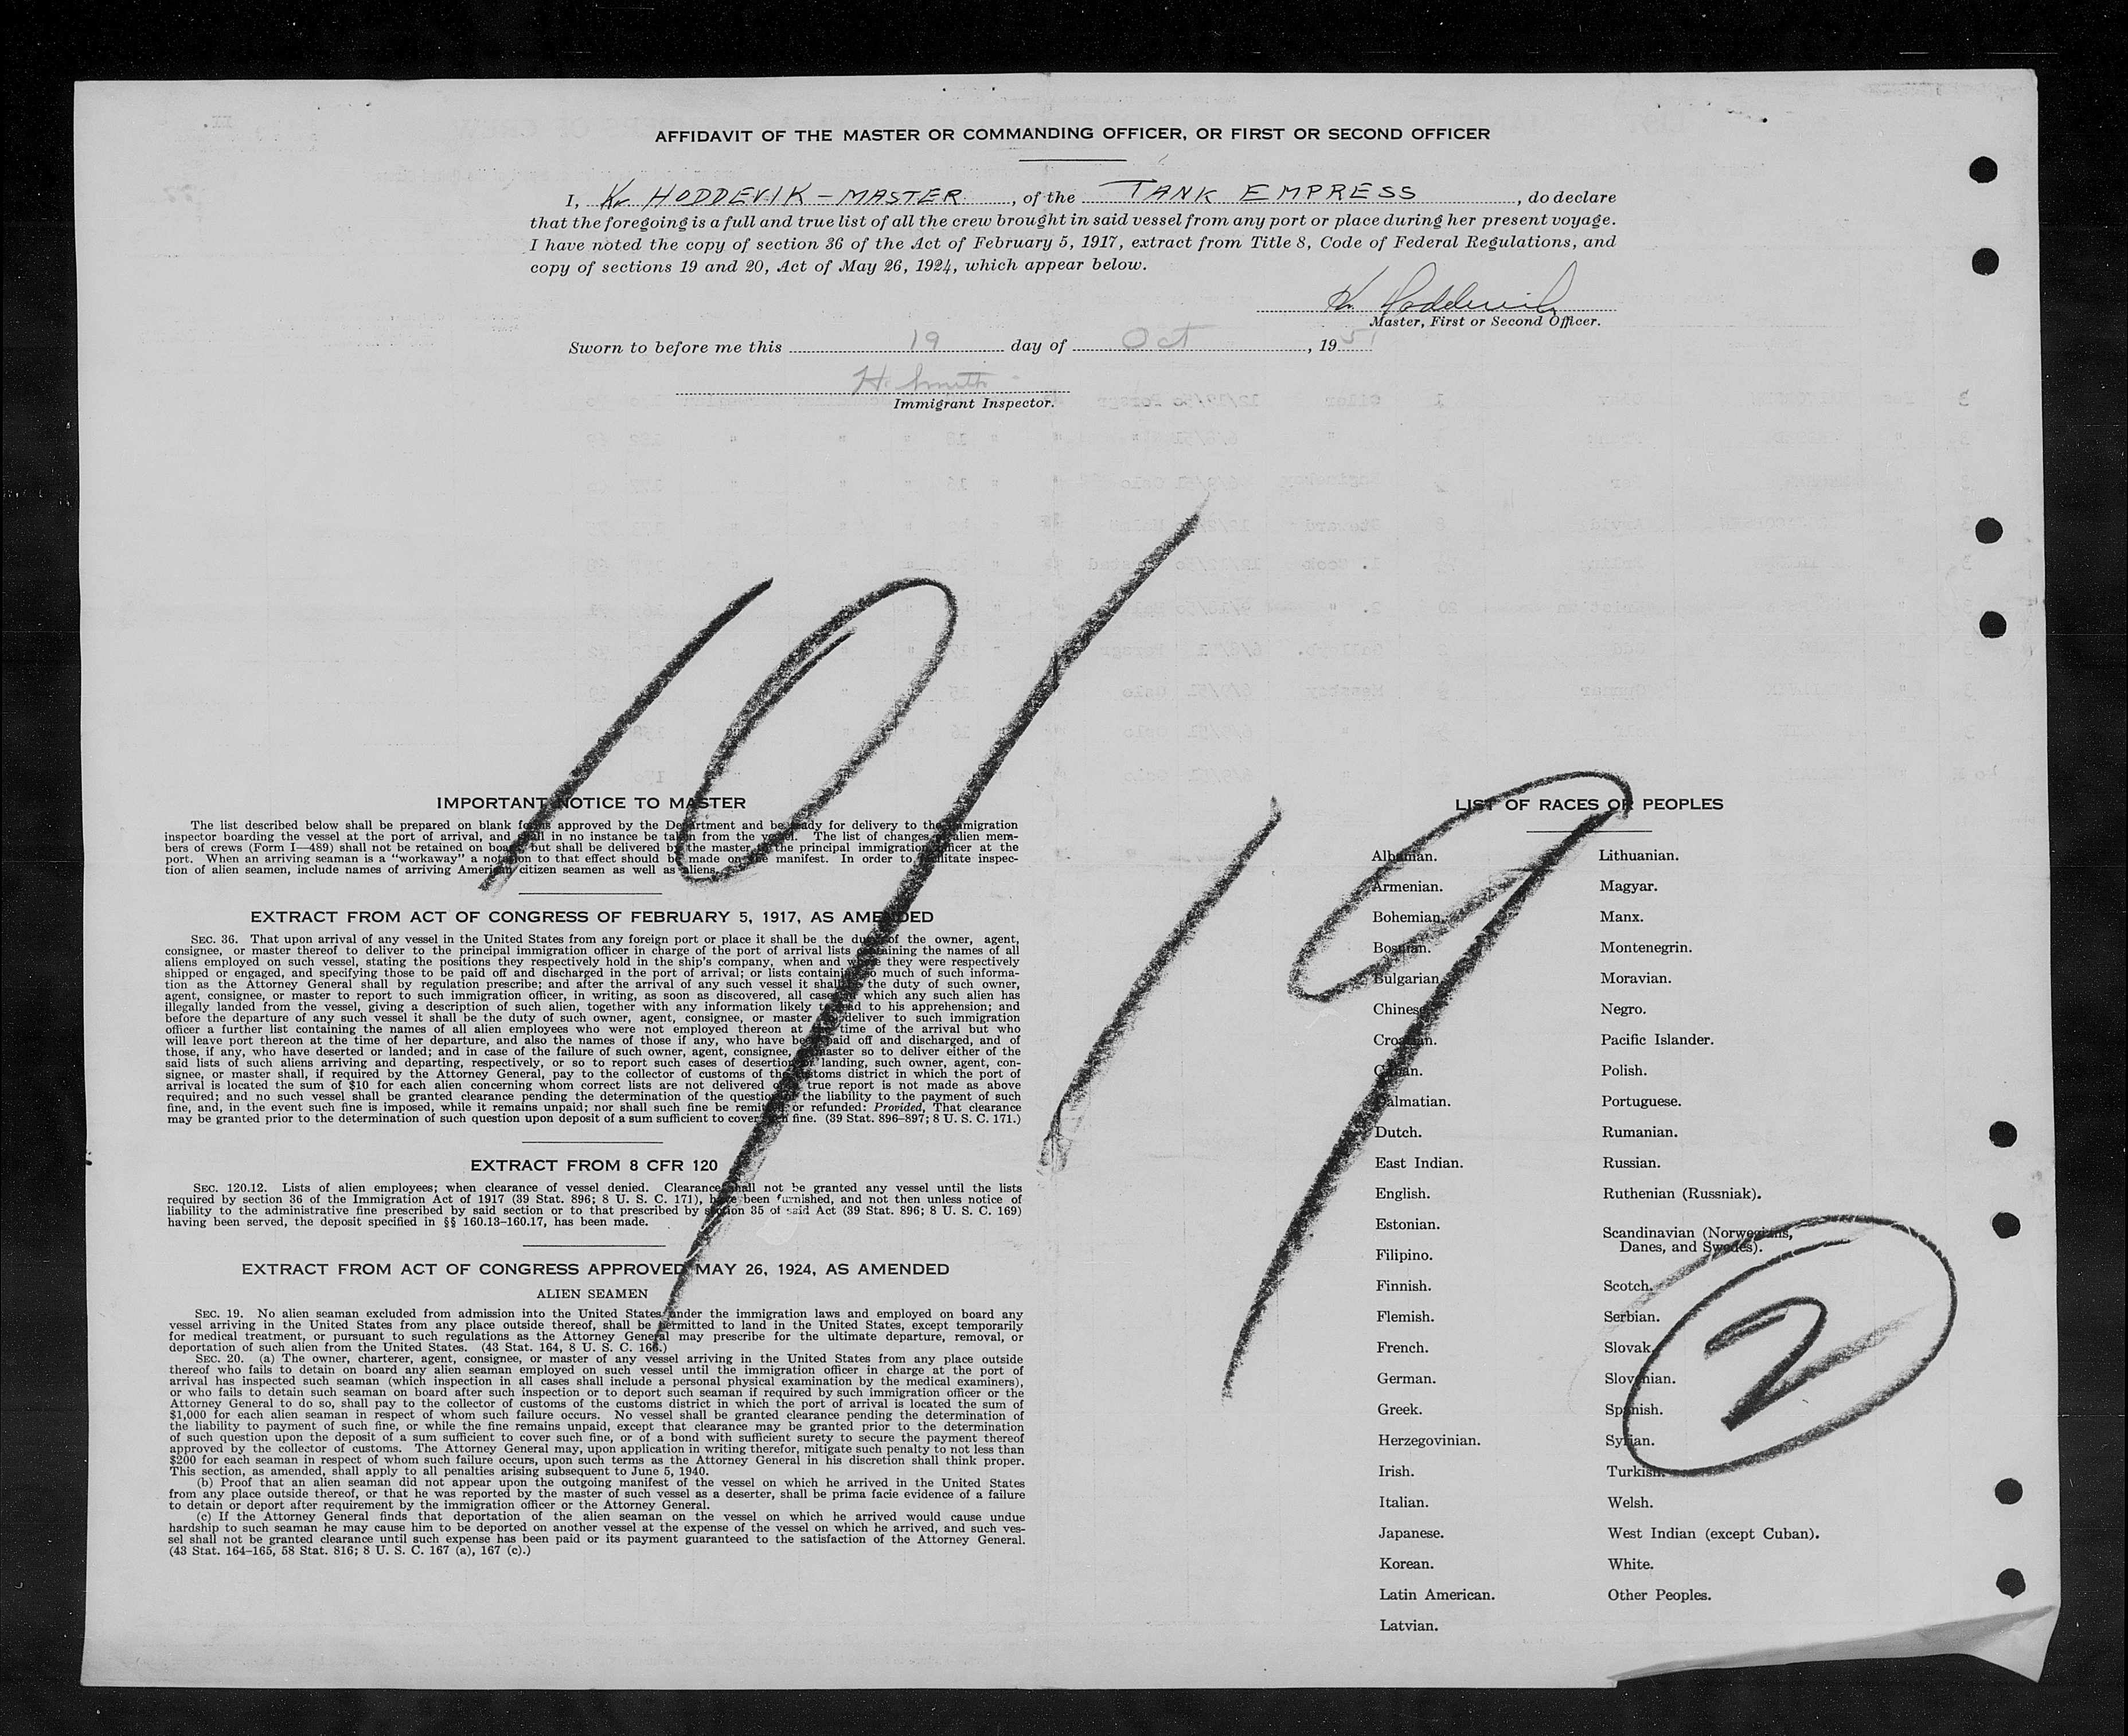 AFFIDAVIT OF THE MASTER OR COMMANDING OFFICER, OR FIRST OR SECOND OFFICER
I, K. HODDEVIK – MASTER, of the TANK EMPRESS, do declare
that the foregoing is a full and true list of all the crew brought in said vessel from any port or place during her present voyage.
I have noted the copy of section 36 of the Act of February 5, 1917, extract from Title 8, Code of Federal Regulations, and
copy of sections 19 and 20, Act of May 26, 1924, which appear below.
K. Hoddevik
Master, First or Second Officer.
Sworn to before me this 19 day of Oct, 1951
H. Smith
Immigrant Inspector.
10/19
IMPORTANT NOTICE TO MASTER
The list described below shall be prepared on blank forms approved by the Department and be ready for delivery to the immigration
inspector boarding the vessel at the port of arrival, and shall in no instance be taken from the vessel. The list of changes of alien mem-
bers of crews (Form I—489) shall not be retained on board but shall be delivered by the master to the principal immigration officer at the
port. When an arriving seaman is a "workaway" a notation to that effect should be made on the manifest. In order to facilitate inspec-
tion of alien seamen, include names of arriving American citizen seamen as well as aliens.
EXTRACT FROM ACT OF CONGRESS OF FEBRUARY 5, 1917, AS AMENDED
SEC. 36. That upon arrival of any vessel in the United States from any foreign port or place it shall be the duty of the owner, agent,
consignee, or master thereof to deliver to the principal immigration officer in charge of the port of arrival lists containing the names of all
aliens employed on such vessel, stating the positions they respectively hold in the ship's company, when and where they were respectively
shipped or engaged, and specifying those to be paid off and discharged in the port of arrival; or lists containing so much of such informa-
tion as the Attorney General shall by regulation prescribe; and after the arrival of any such vessel it shall be the duty of such owner,
agent, consignee, or master to report to such immigration officer, in writing, as soon as discovered, all cases in which any such alien has
illegally landed from the vessel, giving a description of such alien, together with any information likely to lead to his apprehension; and
before the departure of any such vessel it shall be the duty of such owner, agent, consignee, or master to deliver to such immigration
officer a further list containing the names of all alien employees who were not employed thereon at the time of the arrival but who
will leave port thereon at the time of her departure, and also the names of those if any, who have been paid off and discharged, and of
those, if any, who have deserted or landed; and in case of the failure of such owner, agent, consignee, or master so to deliver either of the
said lists of such aliens arriving and departing, respectively, or so to report such cases of desertion or landing, such owner, agent, con-
signee, or master shall, if required by the Attorney General, pay to the collector of customs of the customs district in which the port of
arrival is located the sum of $10 for each alien concerning whom correct lists are not delivered or a true report is not made as above
required; and no such vessel shall be granted clearance pending the determination of the question of the liability to the payment of such
fine, and, in the event such fine is imposed, while it remains unpaid; nor shall such fine be remitted or refunded: Provided, That clearance
may be granted prior to the determination of such question upon deposit of a sum sufficient to cover such fine. (39 Stat. 896–897; 8 U. S. C. 171.)
EXTRACT FROM 8 CFR 120
SEC. 120.12. Lists of alien employees; when clearance of vessel denied. Clearance shall not be granted any vessel until the lists
required by section 36 of the Immigration Act of 1917 (39 Stat. 896; 8 U. S. C. 171), have been furnished, and not then unless notice of
liability to the administrative fine prescribed by said section or to that prescribed by section 35 of said Act (39 Stat. 896; 8 U. S. C. 169)
having been served, the deposit specified in §§ 160.13–160.17, has been made.
EXTRACT FROM ACT OF CONGRESS APPROVED MAY 26, 1924, AS AMENDED
ALIEN SEAMEN
SEC. 19. No alien seaman excluded from admission into the United States under the immigration laws and employed on board any
vessel arriving in the United States from any place outside thereof, shall be permitted to land in the United States, except temporarily
for medical treatment, or pursuant to such regulations as the Attorney General may prescribe for the ultimate departure, removal, or
deportation of such alien from the United States. (43 Stat. 164, 8 U. S. C. 166.)
SEC. 20. (a) The owner, charterer, agent, consignee, or master of any vessel arriving in the United States from any place outside
thereof who fails to detain on board any alien seaman employed on such vessel until the immigration officer in charge at the port of
arrival has inspected such seaman (which inspection in all cases shall include a personal physical examination by the medical examiners),
or who fails to detain such seaman on board after such inspection or to deport such seaman if required by such immigration officer or the
Attorney General to do so, shall pay to the collector of customs of the customs district in which the port of arrival is located the sum of
$1,000 for each alien seaman in respect of whom such failure occurs. No vessel shall be granted clearance pending the determination of
the liability to payment of such fine, or while the fine remains unpaid, except that clearance may be granted prior to the determination
of such question upon the deposit of a sum sufficient to cover such fine, or of a bond with sufficient surety to secure the payment thereof
approved by the collector of customs. The Attorney General may, upon application in writing therefor, mitigate such penalty to not less than
$200 for each seaman in respect of whom such failure occurs, upon such terms as the Attorney General in his discretion shall think proper.
This section, as amended, shall apply to all penalties arising subsequent to June 5, 1940.
(b) Proof that an alien seaman did not appear upon the outgoing manifest of the vessel on which he arrived in the United States
from any place outside thereof, or that he was reported by the master of such vessel as a deserter, shall be prima facie evidence of a failure
to detain or deport after requirement by the immigration officer or the Attorney General.
(c) If the Attorney General finds that deportation of the alien seaman on the vessel on which he arrived would cause undue
hardship to such seaman he may cause him to be deported on another vessel at the expense of the vessel on which he arrived, and such ves-
sel shall not be granted clearance until such expense has been paid or its payment guaranteed to the satisfaction of the Attorney General.
(43 Stat. 164–165, 58 Stat. 816; 8 U. S. C. 167 (a), 167 (c).)
LIST OF RACES OR PEOPLES
Albanian.
Armenian.
Bohemian.
Bosnian.
Bulgarian.
Chinese.
Croatian.
Cuban.
Dalmatian.
Dutch.
East Indian.
English.
Estonian.
Filipino.
Finnish.
Flemish.
French.
German.
Greek.
Herzegovinian.
Irish.
Italian.
Japanese.
Korean.
Latin American.
Latvian.
Lithuanian.
Magyar.
Manx.
Montenegrin.
Moravian.
Negro.
Pacific Islander.
Polish.
Portuguese.
Rumanian.
Russian.
Ruthenian (Russniak).
Scandinavian (Norwegians,
Danes, and Swedes).
Scotch.
Serbian.
Slovak.
Slovenian.
Spanish.
Syrian.
Turkish.
Welsh.
West Indian (except Cuban).
White.
Other Peoples.
2